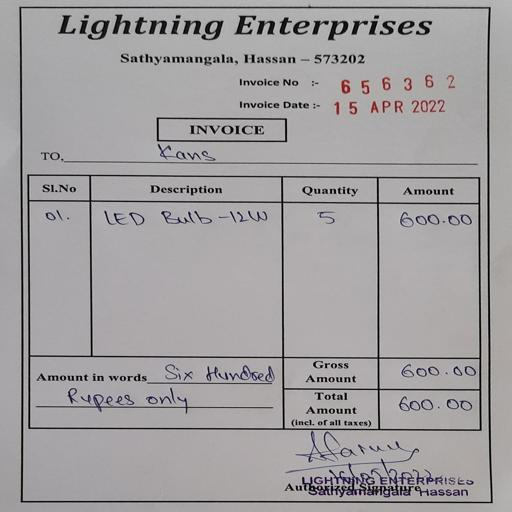 Lightning Enterprises
Sathyamangala, Hassan – 573202
Invoice No :- 656362
Invoice Date :- 15 APR 2022
INVOICE
TO, Kans
Sl.No Description Quantity Amount
01. LED Bulb-12W 5 600.00
Amount in words Six Hundred
Rupees only
Gross Amount 600.00
Total Amount (incl. of all taxes) 600.00
LIGHTNING ENTERPRISES
Authorized Signature
Sathyamangala Hassan